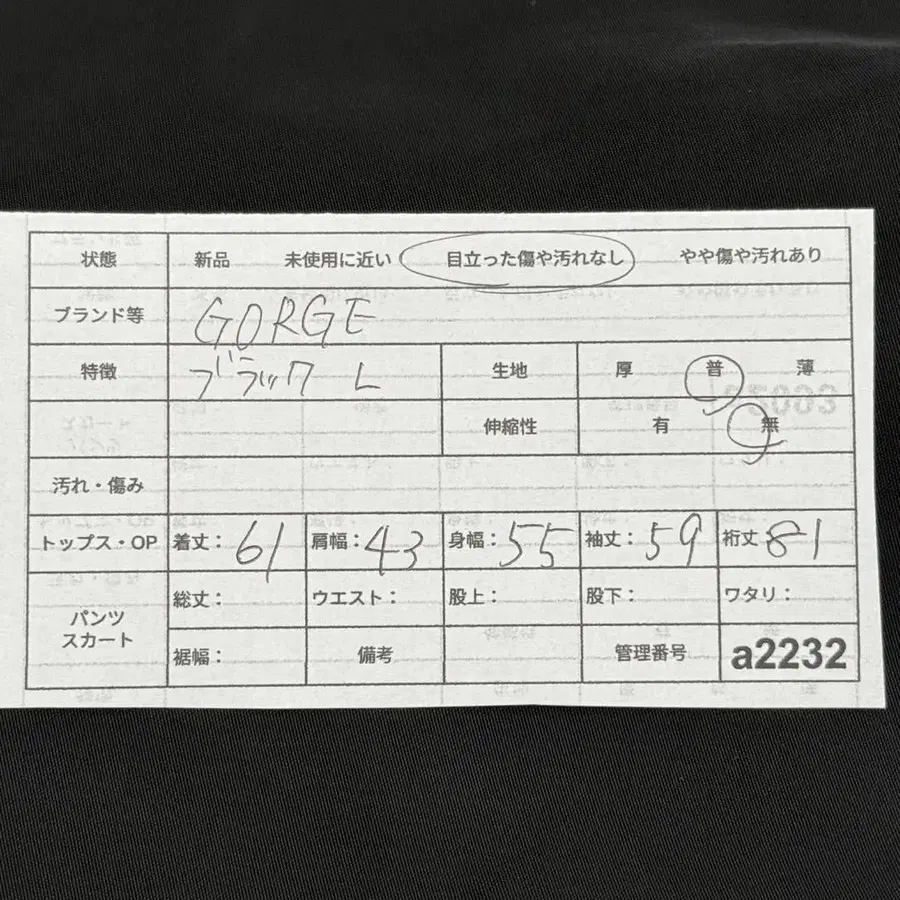 状態 新品 未使用に近い 目立った傷や汚れなし やや傷や汚れあり
ブランド等 GORGE
特徴 ブラック L 生地 厚 普 薄
伸縮性 有 無
汚れ・傷み
トップス・OP 着丈：61 肩幅：43 身幅：55 袖丈：59 裄丈 81
パンツ スカート 総丈： ウエスト： 股上： 股下： ワタリ：
裾幅： 備考 管理番号 a2232